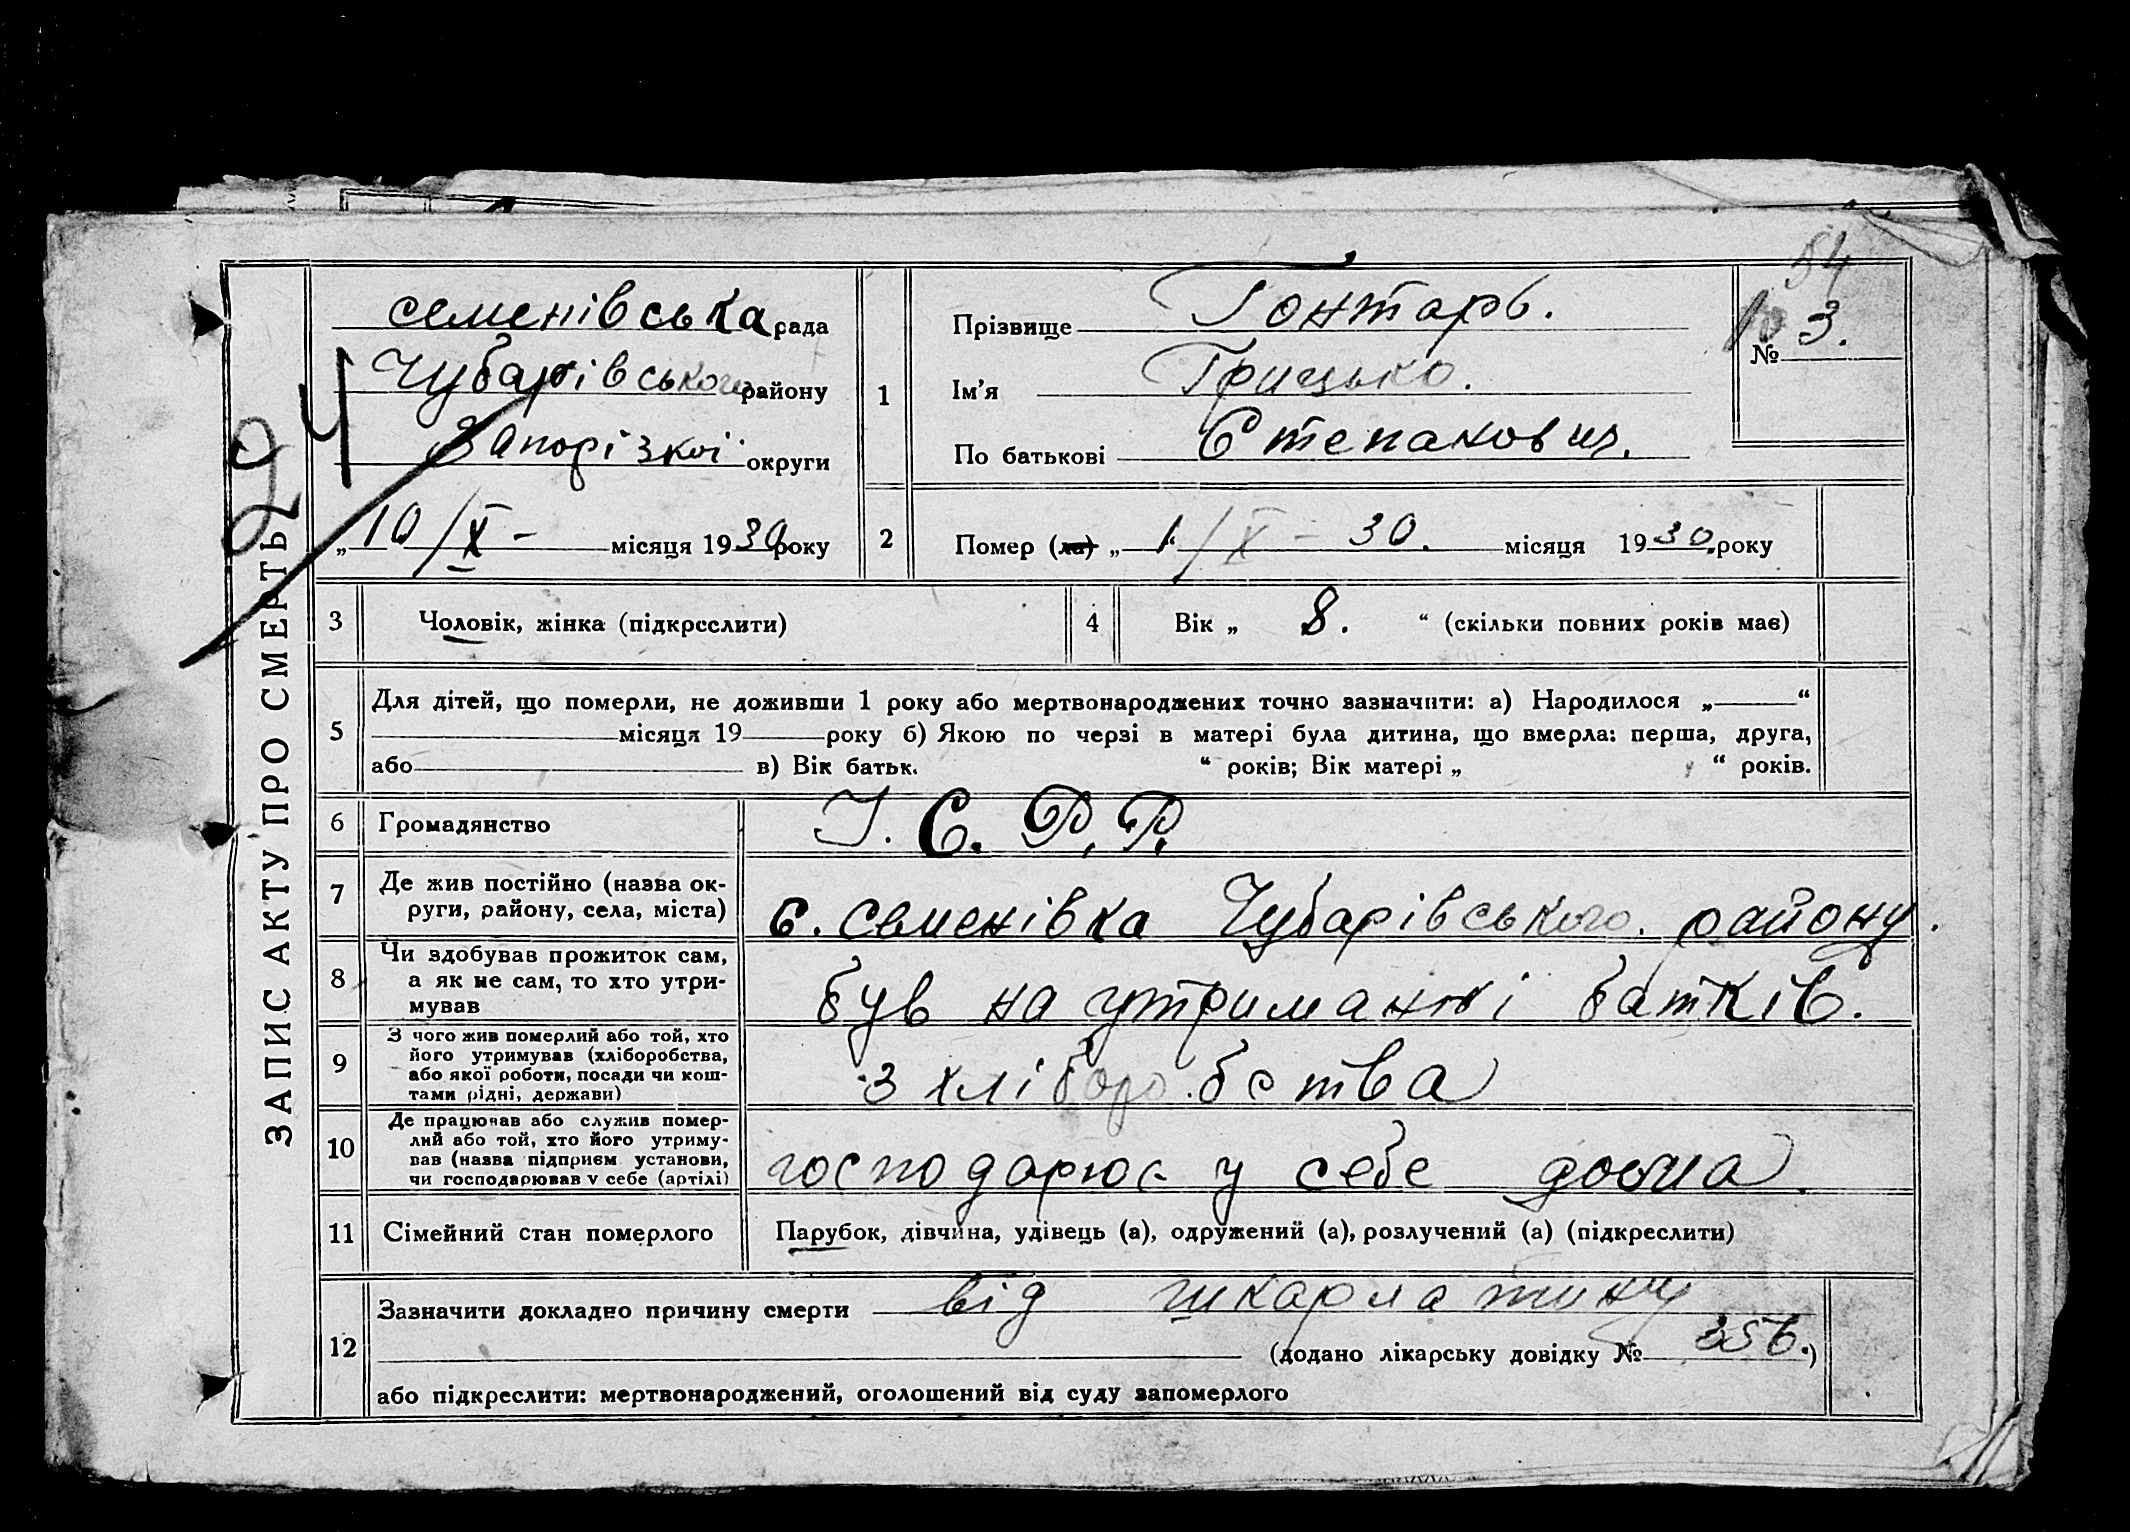 ЗАПИС АКТУ ПРО СМЕРТЬ
54
семенівська рада
Чубарівського району
Запорізкої округи
„10/X- місяця 1930 року
1
Прізвище Гонтарь.
Ім’я Грицько.
По батькові Степанович.
№ 3.
2
Помер (ла) „1“/X - 30. місяця 1930. року
3
Чоловік, жінка (підкреслити)
4
Вік „ 8. “ (скільки повних років має)
5
Для дітей, що померли, не доживши 1 року або мертвонароджених точно зазначити: а) Народилося „ “
місяця 19 року б) Якою по черзі в матері була дитина, що вмерла: перша, друга,
або в) Вік батьк. “ років; Вік матері „ “ років.
6
Громадянство
У. С. Р. Р.
7
Де жив постійно (назва ок-
руги, району, села, міста)
с. семенівка Чубарівського району.
8
Чи здобував прожиток сам,
а як не сам, то хто утри-
мував
був на утриманні батків.
9
З чого жив померлий або той, хто
його утримував (хліборобства,
або якої роботи, посади чи кош-
тами рідні, держави)
з хліборобства
10
Де працював або служив помер-
лий або той, хто його утриму-
вав (назва підприєм установи,
чи господарював у себе (артілі)
господарює у себе дома.
11
Сімейний стан померлого
Парубок, дівчина, удівець (а), одружений (а), розлучений (а) (підкреслити)
12
Зазначити докладно причину смерти від шкарлатину
(додано лікарську довідку № 356.)
або підкреслити: мертвонароджений, оголошений від суду запомерлого